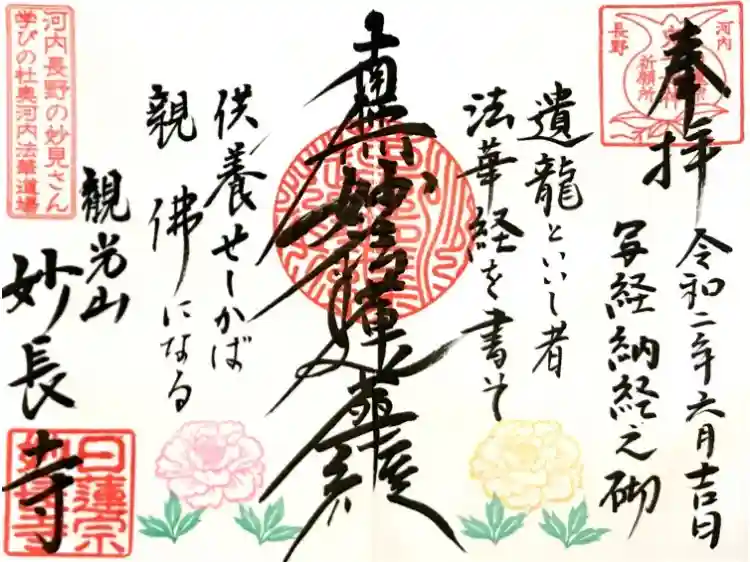 奉拝
令和二年六月吉日
写経納経之砌
遺龍といいし者
法華経を書きて
南無妙法蓮華経
供養せしかば
親 佛になる
観光山
妙長寺
河内
長野
祈願所
河内長野の妙見さん
学びの杜奥河内法華道場
日蓮宗
妙長寺